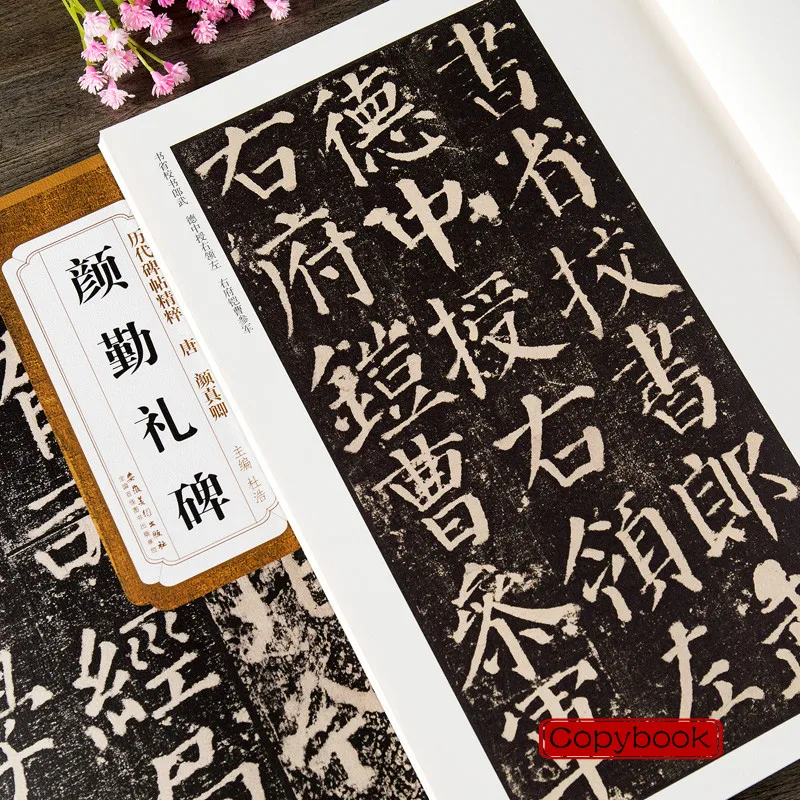 書省校書郎武
德中授右領左
右府鎧曹參軍
书省校书郎武 德中授右领左 右府铠曹参军
历代碑帖精粹 唐 颜真卿
颜勤礼碑
主编 杜浩
安徽美术出版社
經局
Copybook